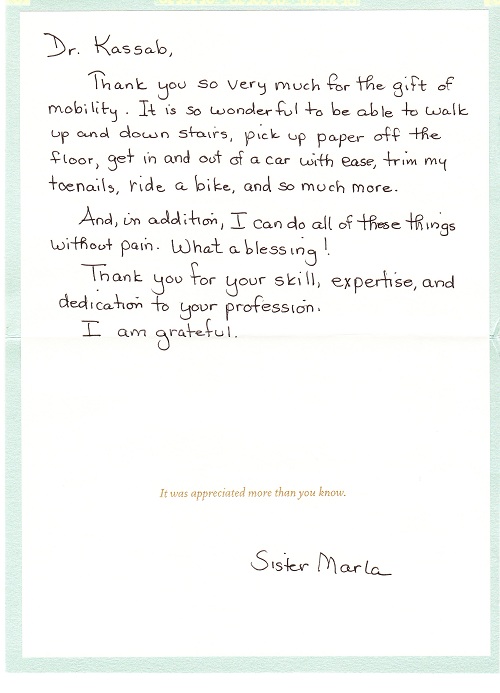 Dr. Kassab,
Thank you so very much for the gift of
mobility. It is so wonderful to be able to walk
up and down stairs, pick up paper off the
floor, get in and out of a car with ease, trim my
toenails, ride a bike, and so much more.
And, in addition, I can do all of these things
without pain. What a blessing!
Thank you for your skill, expertise, and
dedication to your profession.
I am grateful.
It was appreciated more than you know.
Sister Marla